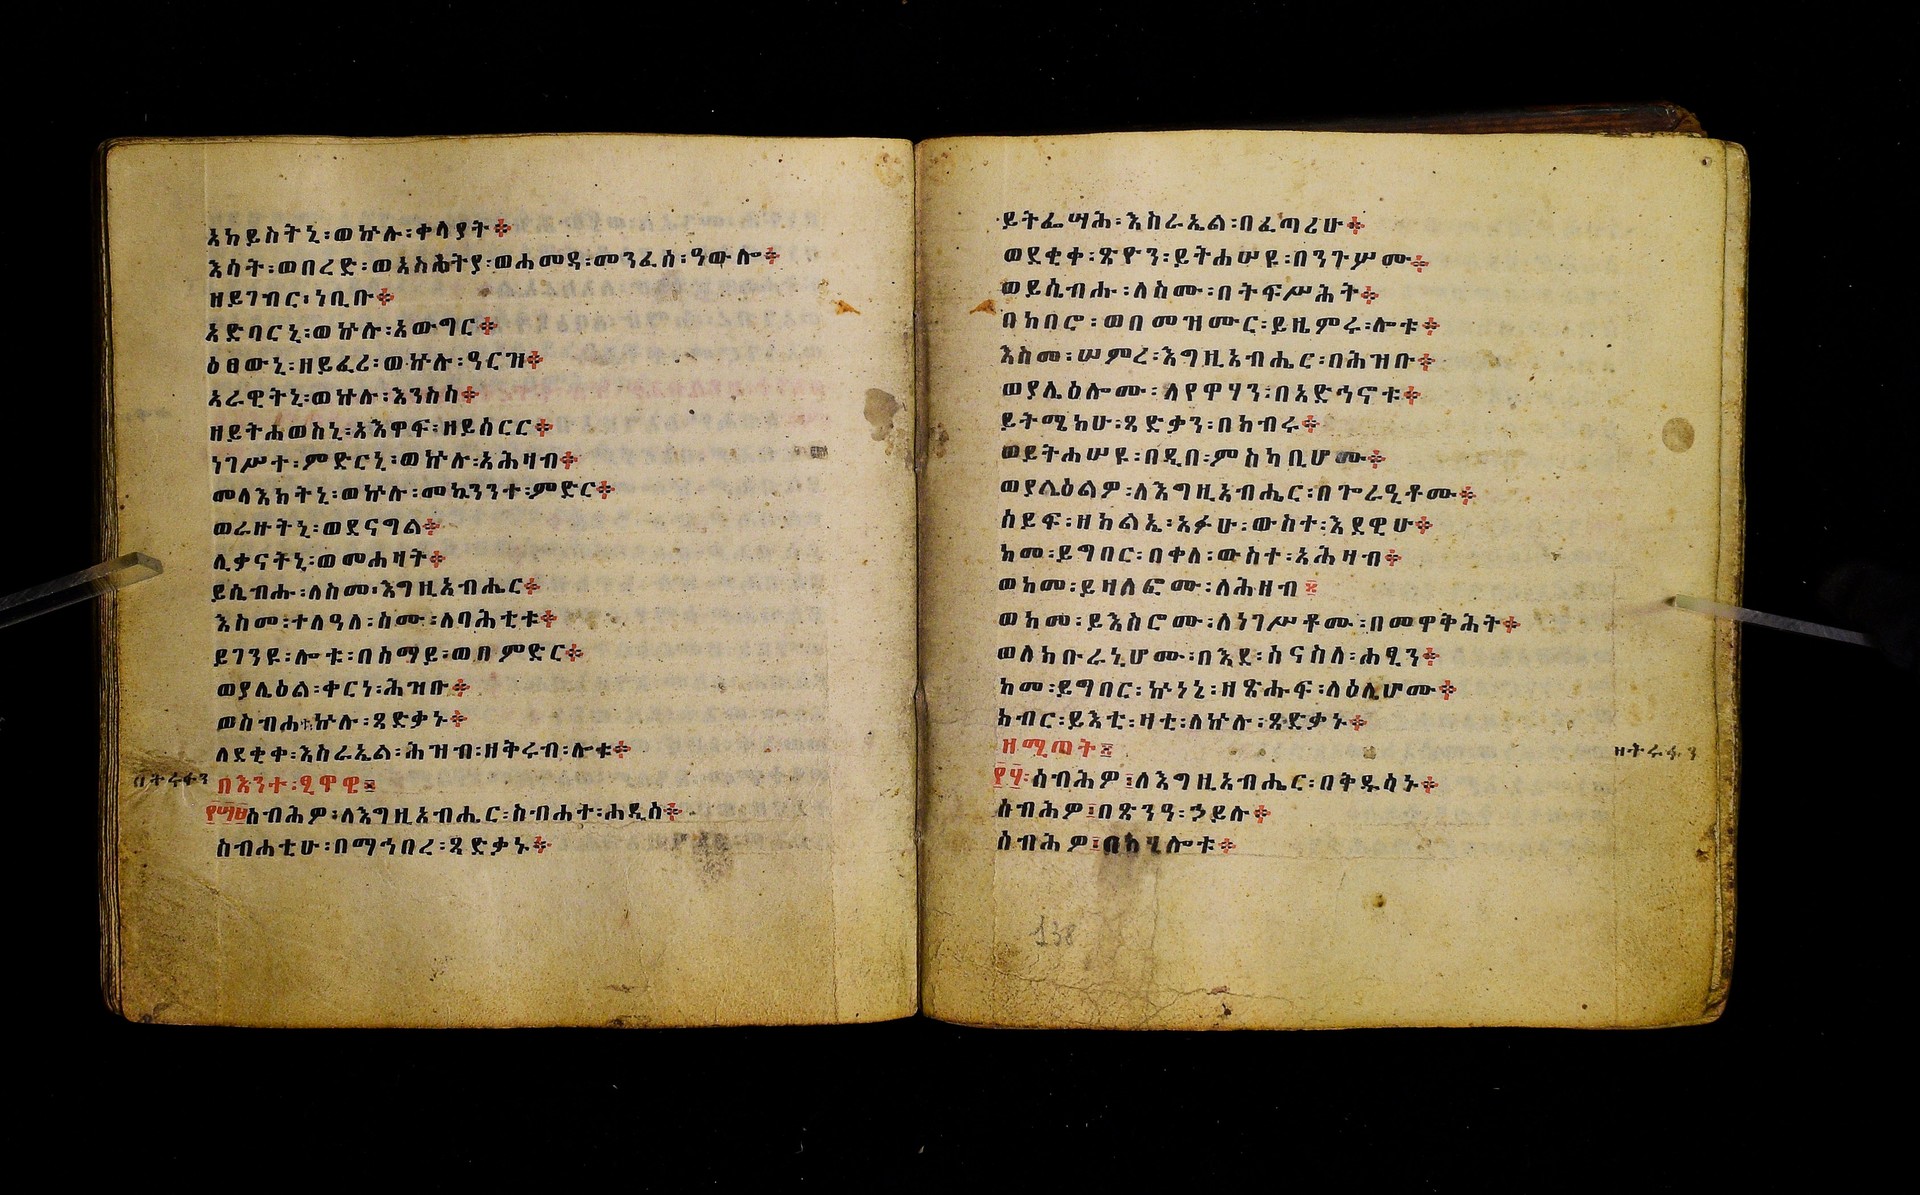 አከይስትኒ፡ወኵሉ፡ቀላያት፨
እሳት፡ወበረድ፡ወአስሐትያ፡ወሐመዳ፡መንፈሰ፡ዓውሎ፨
ዘይገብር፡ነቢቡ፨
አድባርኒ፡ወኵሉ፡አውግር፨
ዕፀውኒ፡ዘይፈሪ፡ወኵሉ፡ዓርዝ፨
አራዊትኒ፡ወኵሉ፡እንስሳ፨
ዘይትሐወስኒ፡አእዋፍ፡ዘይሰርር፨
ነገሥተ፡ምድርኒ፡ወኵሉ፡አሕዛብ፨
መላእክትኒ፡ወኵሉ፡መኳንንተ፡ምድር፨
ወራዙትኒ፡ወደናግል፨
ሊቃናትኒ፡ወመሐዛት፨
ይሴብሑ፡ለስመ፡እግዚአብሔር፨
እስመ፡ተለዓለ፡ስሙ፡ለባሕቲቱ፨
ይገንዩ፡ሎቱ፡በሰማይ፡ወበምድር፨
ወያሌዕል፡ቀርነ፡ሕዝቡ፨
ወስብሐት፡ኵሉ፡ጻድቃኑ፨
ለደቂቀ፡እስራኤል፡ሕዝብ፡ዘቅሩብ፡ሎቱ፨
በእንተ፡ፂዋዊ፨
፻፵፱ስብሕዎ፡ለእግዚአብሔር፡ስብሐተ፡ሐዲስ፨
ስብሐቲሁ፡በማኅበረ፡ጻድቃኑ፨
ይትፌሣሕ፡እስራኤል፡በፈጣሪሁ፨
ወደቂቀ፡ጽዮን፡ይትሐሠዩ፡በንጉሦሙ፨
ወይሴብሑ፡ለስሙ፡በትፍሥሕት፨
በከበሮ፡ወበመዝሙር፡ይዜምሩ፡ሎቱ፨
እስመ፡ሠምረ፡እግዚአብሔር፡በሕዝቡ፨
ወያሌዕሎሙ፡ለየዋሃን፡በአድኅኖቱ፨
ይትሜክሁ፡ጻድቃን፡በክብሩ፨
ወይትሐሠዩ፡በዲበ፡ምስካቢሆሙ፨
ወያሌዕልዎ፡ለእግዚአብሔር፡በጐራዒቶሙ፨
ሰይፍ፡ዘክልኤ፡አፉሁ፡ውስተ፡እደዊሁ፨
ከመ፡ይግበር፡በቀለ፡ውስተ፡አሕዛብ፨
ወከመ፡ይዛለፎሙ፡ለሕዘብ፨
ወከመ፡ይእስሮሙ፡ለነገሥቶሙ፡በመዋቅሕት፨
ወለክቡራኒሆሙ፡በእደ፡ሰናስለ፡ሐፂን፨
ከመ፡ይግበር፡ኵነኔ፡ዘጽሑፍ፡ላዕሌሆሙ፨
ክብር፡ይእቲ፡ዛቲ፡ለኵሉ፡ጻድቃኑ፨
ዘሚጠት፨
፻፶፡ስብሕዎ፡ለእግዚአብሔር፡በቅዱሳኑ፨
ስብሕዎ፡በጽንዓ፡ኃይሉ፨
ስብሕዎ፡በከሂሎቱ፨
138